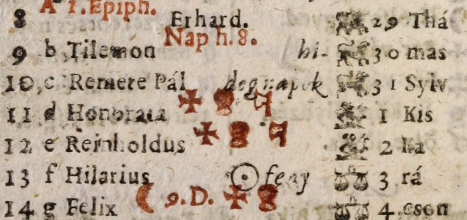 8 A 1. Epiph. Erhard. 29 Thá
9 b Tilemon Nap h. 8. hi- 30 mas
10 c Remete Pál degnapok 31 Sylv
11 d Honorata 1 Kis
12 e Reinholdus 2 Ka
13 f Hilarius feny 3 rá
14 g Felix 9. D. 4 cson